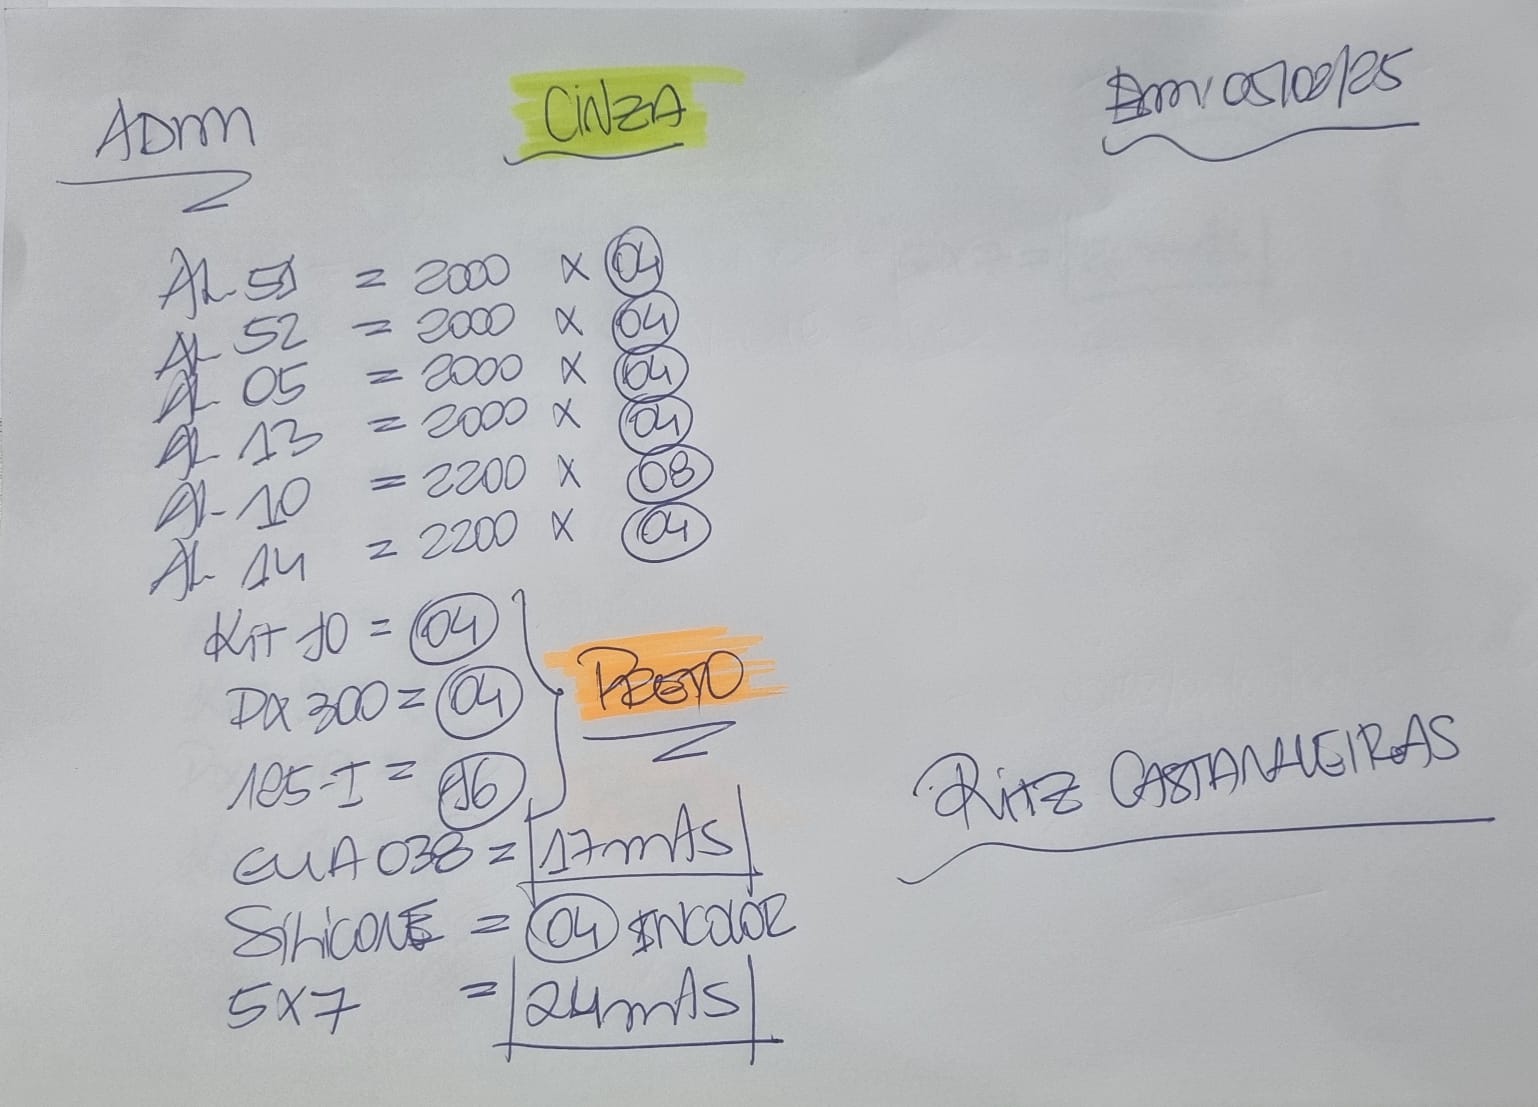 ADM
CINZA
Em: 05/02/25
AL 51 = 2000 x 04
AL 52 = 2000 x 04
AL 05 = 2000 x 04
AL 13 = 2000 x 04
AL 10 = 2200 x 08
AL 14 = 2200 x 04
Kit 10 = 04
DX 300 = 04
PRETO
185-I = 16
GUA 038 = 17 mts
SiliCONE = 04 INCOLOR
5x7 = 24 mts
Ritz CASTANHEIRAS